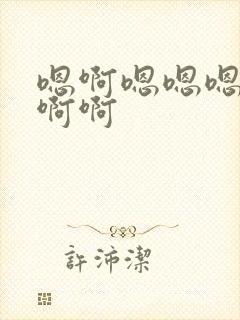 嗯啊嗯嗯嗯
啊啊
許沛潔